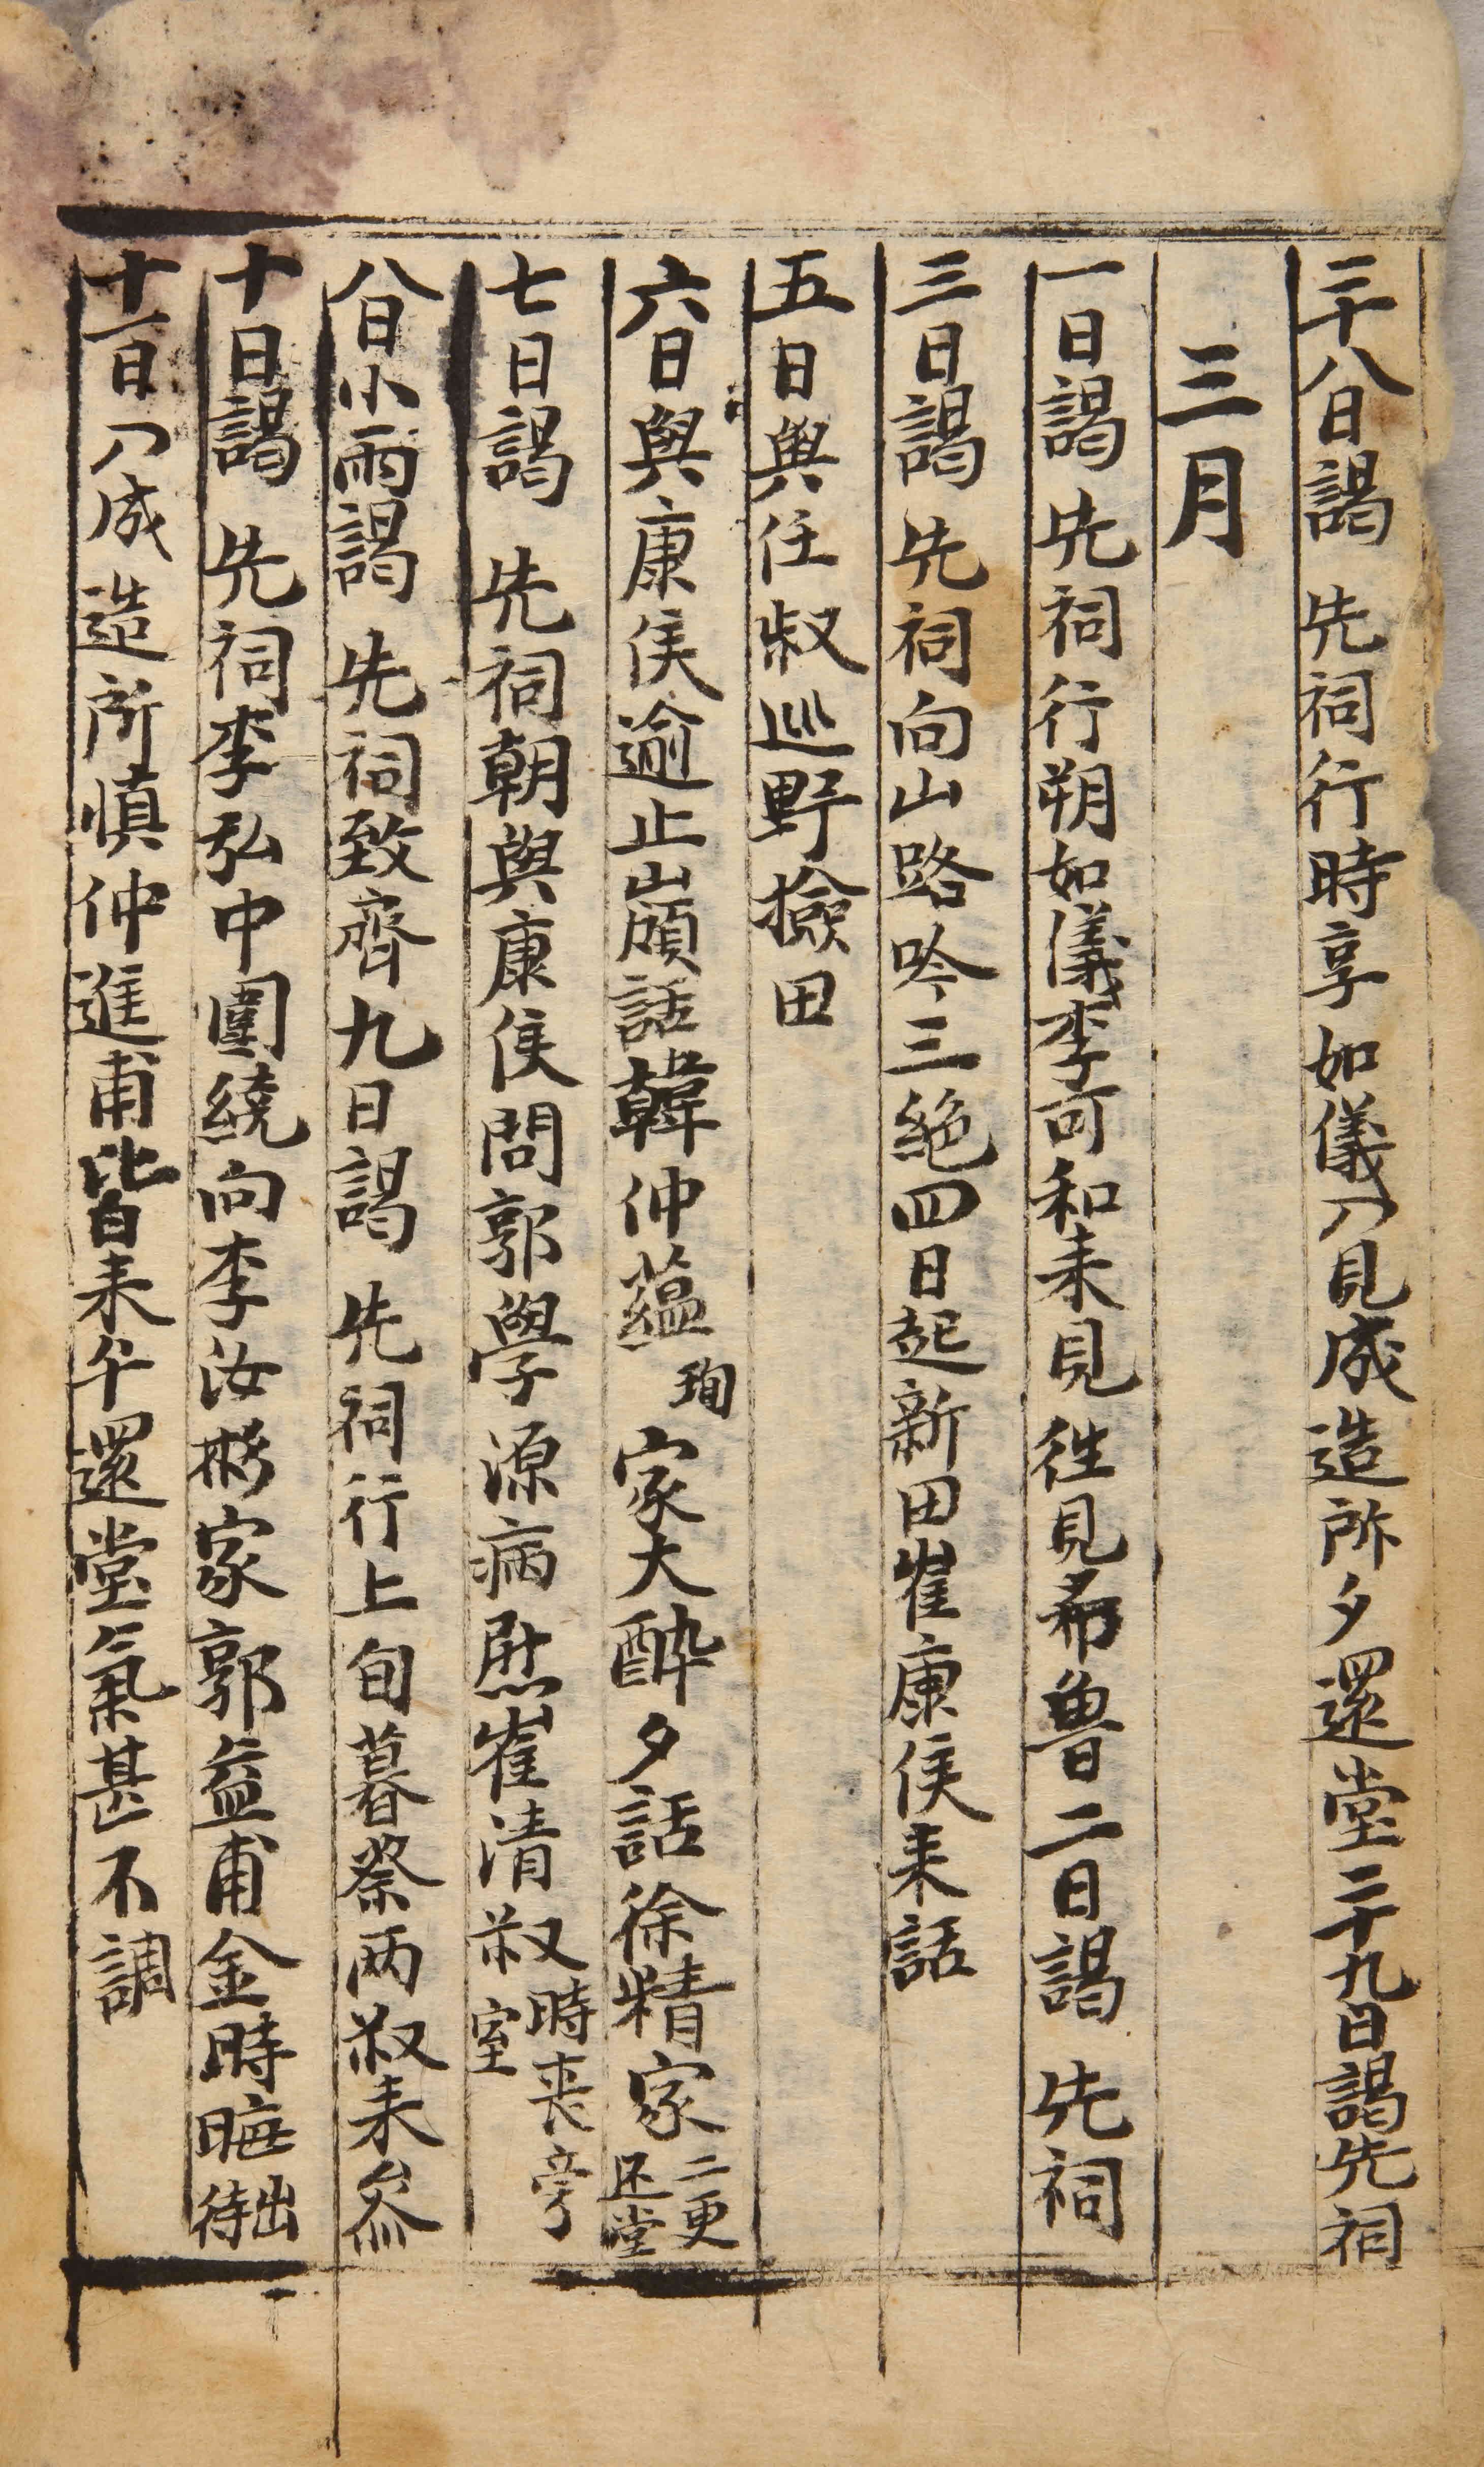 二十八日謁　先祠行時享如儀入見成造所夕還堂二十九日謁先祠
三月
一日謁　先祠行朔如儀李可和来見徃見希魯二日謁　先祠
三日謁　先祠向山路吟三絶四日起新田崔康侯来話
五日與任叔巡野撿田
六日與康侯逾止巓話韓仲蘊珣家大酔夕話徐精家二更还堂
七日謁　先祠朝與康侯問郭學源病慰崔清叔時丧旁室
八日小雨謁　先祠致齊九日謁　先祠行上旬暮祭两叔来叅
十日謁　先祠李弘中圍繞向李汝彬家郭益甫金時晦出待
十一日入成造所慎仲進甫皆来午還堂氣甚不調